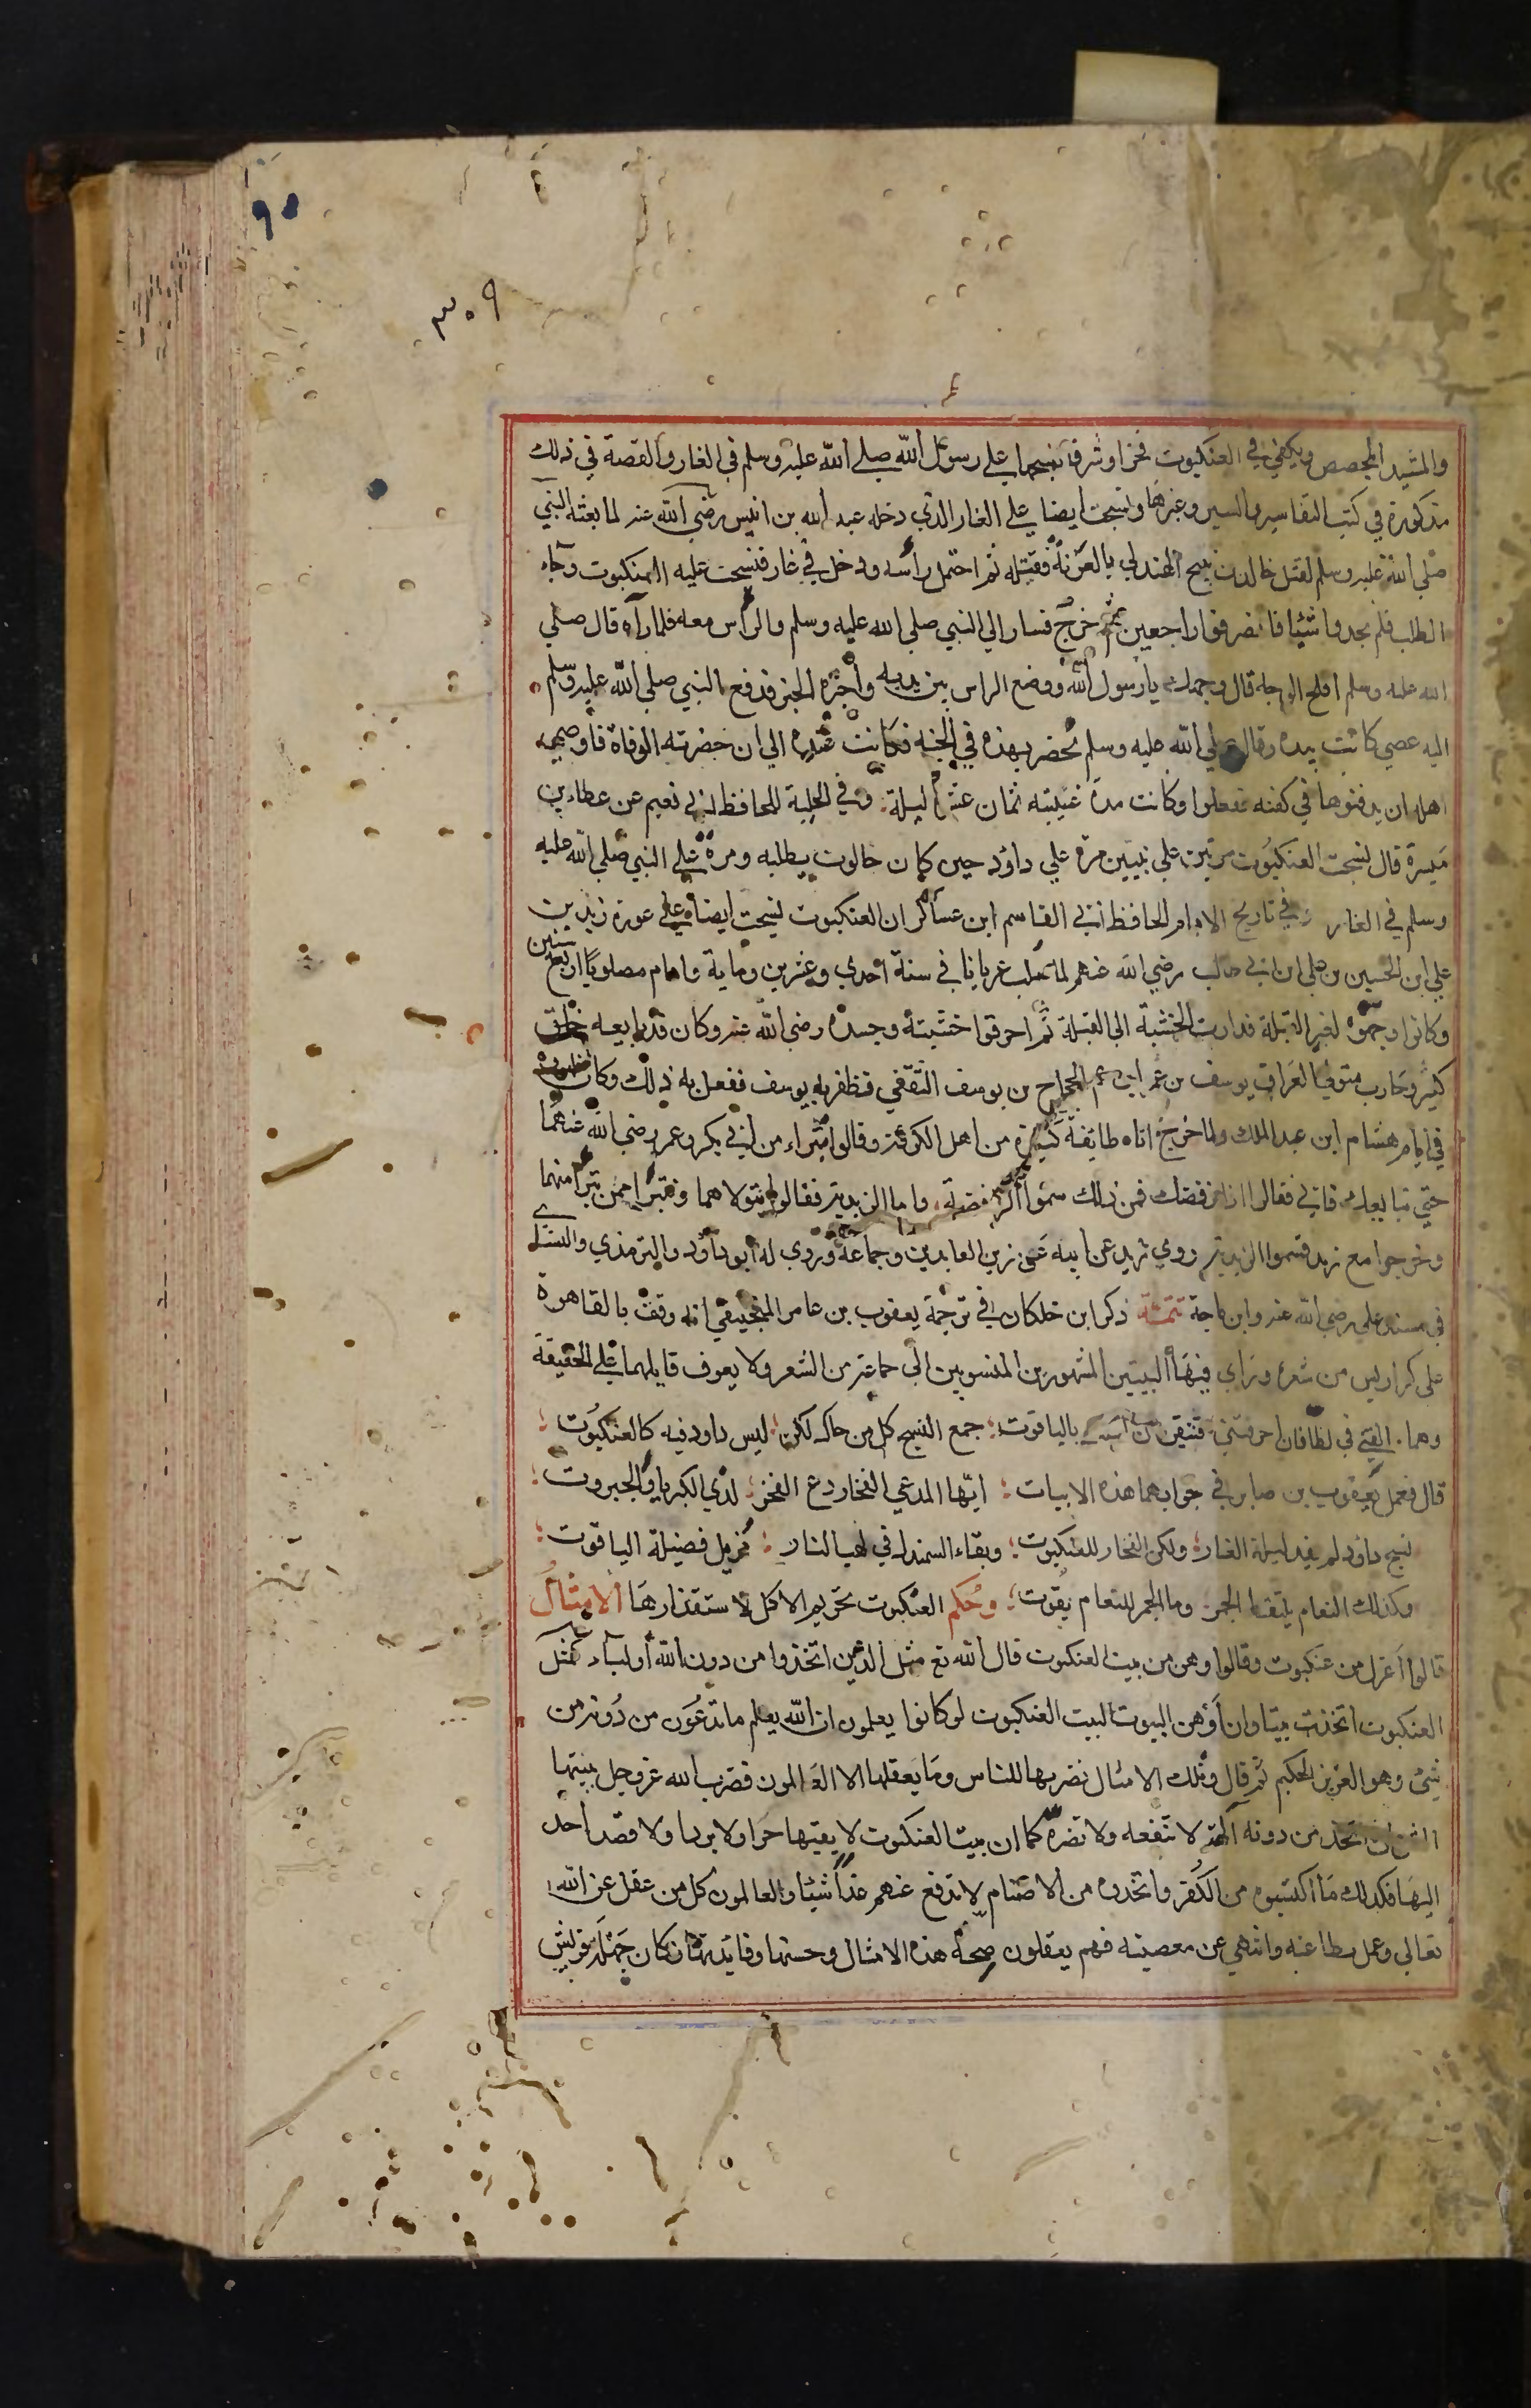 ٩٥
٣٠٩
والمشيد المجصص ويكفي في العنكبوت فخرا وشرفا نسجها علي رسول الله صلي الله عليه وسلم في الغار والقصة في ذلك
مذكورة في كتب التفاسير والسير وغيرها ونسجت ايضا علي الغار الذي دخله عبد الله بن انيس رضي الله عنه لما بعثه النبي
صلي الله عليه وسلم لقتل خالد بن نبيح الهذلي بالعرنة فقتله ثم احتمل راسه ودخل في غار فنسجت عليه العنكبوت وجاء
الطلب فلم يجدوا شيئا فانصرفوا راجعين ثم خرج فسار الي النبي صلي الله عليه وسلم والراس معه فلما رآه قال صلي
الله عليه وسلم افلح الوجه قال وجهك يا رسول الله ووضع الراس بين يديه واخبره الخبر فدفع النبي صلي الله عليه وسلم
اليه عصي كانت بيده وقال صلي الله عليه وسلم تحضر بهذه في الجنة فكانت عنده الي ان حضرته الوفاة فاوصي
اهله ان يدفنوها في كفنه ففعلوا وكانت مدة غيبته ثمان عشر ليلة وفي الحلية للحافظ ابي نعيم عن عطاء بن
ميسرة قال نسجت العنكبوت مرتين علي نبيين مرة علي داؤد حين كان جالوت يطلبه ومرة علي النبي صلي الله عليه
وسلم في الغار وفي تاريخ الامام الحافظ ابي القاسم ابن عساكر ان العنكبوت نسجت ايضا علي عورة زيد بن
علي ابن الحسين بن علي ابن ابي طالب رضي الله عنهم لما صلب عريانا في سنة احدي وعشرين وماية واقام مصلوبا اربع سنين
وكانوا وجهوه لغير القبلة فدارت الخشبة الي القبلة ثم احرقوا خشبته وجسده رضي الله عنه وكان قد بايعه خلق
كثير وحارب متولي العراق يوسف بن عمر ابن عم الحجاج بن يوسف الثقفي فظفر به يوسف ففعل به ذلك وكان ظهوره
في ايام هشام ابن عبد الملك ولما خرج اتاه طايفة كثيرة من اهل الكوفة وقالوا تبراء من ابي بكر وعمر رضي الله عنهما
حتي نبايعك فابي فقالوا اذا نرفضك فمن ذلك سموا الرافضة واما الزيدية فقالوا نتولاهما ونتبرا ممن تبرا منهما
وخرجوا مع زيد فسموا الزيدية روي زيد عن ابيه عن زين العابدين وجماعة وروي له ابو داؤد والترمذي والنساي
في مسند علي رضي الله عنه وابن ماجة تتمة ذكر ابن خلكان في ترجمة يعقوب بن عامر المنجنيقي انه وقف بالقاهرة
علي كراريس من شعره وراي فيها البيتين المشهورين المنسوبين الي جماعة من الشعر ولا يعرف قايلهما علي الحقيقة
وهما القني في لظا فان احرقتني فتيقن ان لست بالياقوت جمع النسج كل من حاك لكن ليس داود فيه كالعنكبوت
قال فعمل يعقوب بن صابر في جوابهما هذه الابيات ايها المدعي الفخار دع الفخر لذي الكبرياء والجبروت
نسج داؤد لم يفد ليلة الغار ولكن الفخار للعنكبوت وبقاء السمند في لهب النار مزيل فضيلة الياقوت
وكذلك النعام يلتقط الجمر وما الجمر للنعام بقوت وحكم العنكبوت تحريم الاكل لاستقذارها الامثال
قالوا اغزل من عنكبوت وقالوا وهن من بيت العنكبوت قال الله تع مثل الذين اتخذوا من دون الله اولياء كمثل
العنكبوت اتخذت بيتا وان اوهن البيوت لبيت العنكبوت لو كانوا يعلمون ان الله يعلم ما تدعون من دونه من
شئ وهو العزيز الحكيم ثم قال وتلك الامثال نضربها للناس وما يعقلها الا العالمون فضرب الله عز وجل بيتها
اتخذ من دونه آلهة لا تنفعه ولا تضره كما ان بيت العنكبوت لا يقيها حرا ولا بردا ولا قصد احد
اليها فكذلك ما اكتسبوه من الكفر واتخذوه من الاصنام لا تدفع عنهم غدا شيئا والعالمون كل من عقل عن الله
تعالي وعمل بطاعته وانتهي عن معصيته فهم يعقلون صحة هذه الامثال وحسنها وفايدتها وكان جهلة قريش